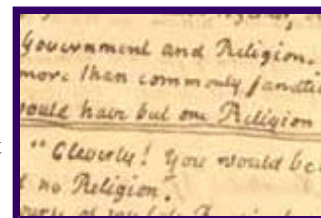 Government and Religion.
more than commonly fanatic
would have but one Religion
"Cleverly! You would be
no Religion.